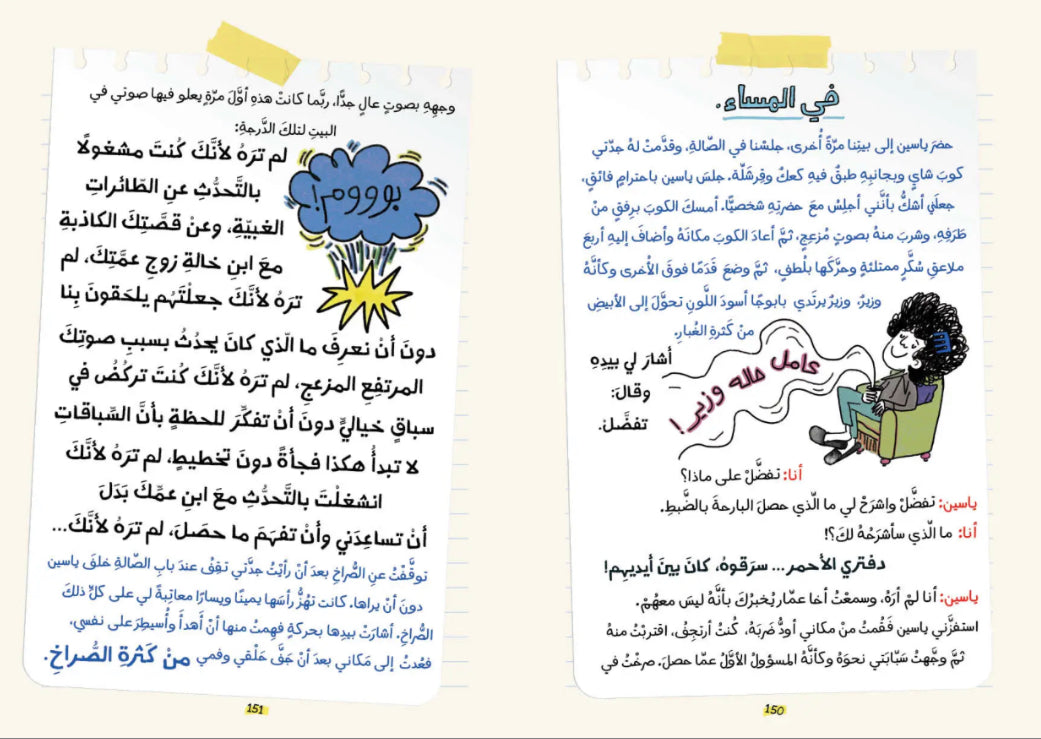 في المساء.
حضرَ ياسين إلى بيتِنا مرّةً أُخرى، جلسْنا في الصّالةِ، وقدَّمتْ لهُ جدّتي
كوبَ شايٍ وبجانبِهِ طبقٌ فيهِ كعكٌ وقِرشَلّة. جلسَ ياسين باحترامٍ فائقٍ،
جعلَني أشكُّ بأنَّني أجلِسُ معَ حضرتِهِ شخصيًّا. أمسكَ الكوبَ برِفقٍ منْ
طَرَفِهِ، وشربَ منهُ بصوتٍ مُزعِجٍ، ثمَّ أعادَ الكوبَ مكانَهُ وأضافَ إليهِ أربعَ
ملاعقِ سُكَّرٍ ممتلئةٍ وحرَّكَها بلُطفٍ، ثمَّ وضعَ قَدَمًا فوقَ الأُخرى وكأنَّهُ
وزيرٌ، وزيرٌ يرتَدي بابوجًا أسودَ اللَّونِ تحوَّلَ إلى الأبيضِ
منْ كَثرةِ الغُبارِ.
عامل حاله وزير!
أشارَ لي بيدِهِ
وقالَ:
تفضَّل.
أنا: تفضَّلْ على ماذا؟
ياسين: تفضَّلْ واشرَحْ لي ما الّذي حصلَ البارحةَ بالضَّبطِ.
أنا: ما الّذي سأشرَحُهُ لكَ؟!
دفتري الأحمر... سرَقوهُ، كانَ بينَ أيديهِم!
ياسين: أنا لمْ أرَهُ، وسمعْتُ أخا عمّار يُخبرُكَ بأنَّهُ ليسَ معهُمْ.
استفزَّني ياسين فَقُمتُ منْ مكاني أودُّ ضَربَهُ، كُنتُ أرتجِفُ، اقتربْتُ منهُ
ثمَّ وجَّهتُ سَبّابَتي نحوَهُ وكأنَّهُ المسؤولُ الأوَّلُ عمّا حصلَ. صرخْتُ في
150
وجهِهِ بصوتٍ عالٍ جدًّا، ربَّما كانتْ هذهِ أوَّلَ مرّةٍ يعلو فيها صوتي في
البيتِ لتلكَ الدَّرجةِ:
بوووم!
لم ترَهُ لأنَّكَ كُنتَ مشغولًا
بالتَّحدُّثِ عنِ الطّائراتِ
الغبيّةِ، وعنْ قصَّتِكَ الكاذبةِ
معَ ابنِ خالةِ زوجِ عمَّتِكَ، لم
ترَهُ لأنَّكَ جعلْتَهُم يلحَقونَ بِنا
دونَ أنْ نعرِفَ ما الّذي كانَ يحدُثُ بسببِ صوتِكَ
المرتفِعِ المزعجِ، لم ترَهُ لأنَّكَ كُنتَ تركُضُ في
سباقٍ خياليٍّ دونَ أنْ تفكِّرَ للحظةٍ بأنَّ السِّباقاتِ
لا تبدأُ هكذا فجأةً دونَ تخطيطٍ، لم ترَهُ لأنَّكَ
انشغلْتَ بالتَّحدُّثِ معَ ابنِ عمِّكَ بَدَلَ
أنْ تساعِدَني وأنْ تفهَمَ ما حصَلَ، لم ترَهُ لأنَّكَ...
توقَّفْتُ عنِ الصُّراخِ بعدَ أنْ رأيْتُ جدَّتي تقِفُ عندَ بابِ الصّالةِ خلفَ ياسين
دونَ أنْ يراها. كانت تهُزُّ رأسَها يمينًا ويسارًا معاتِبةً لي على كلِّ ذلكَ
الصُّراخِ. أشارَتْ بيدِها بحركةٍ فهِمتُ منها أنْ أهدأَ وأُسيطِرَ على نفسي،
فعُدتُ إلى مَكاني بعدَ أنْ جَفَّ حَلْقي وفمي منْ كَثرةِ الصُّراخِ.
151